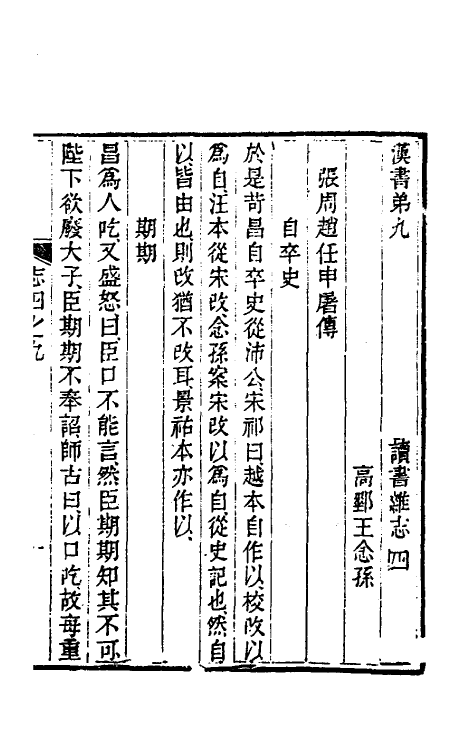 漢書弟九　讀書雜志四
高郵王念孫
張周趙任申屠傳
自卒史
於是苛昌自卒史從沛公宋祁曰越本自作以校改以
爲自汪本從宋改念孫案宋改以爲自從史記也然自
以皆由也則改猶不改耳景祐本亦作以
期期
昌爲人吃又盛怒曰臣口不能言然臣期期知其不可
陛下欲廢大子臣期期不奉詔師古曰以口吃故每重
志四之九　一